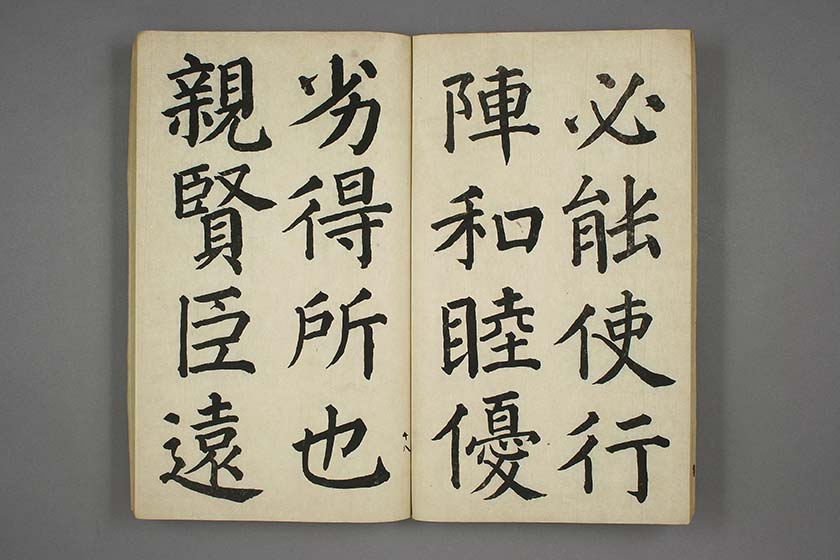 必能使行
陣和睦優
劣得所也
親賢臣遠
十八